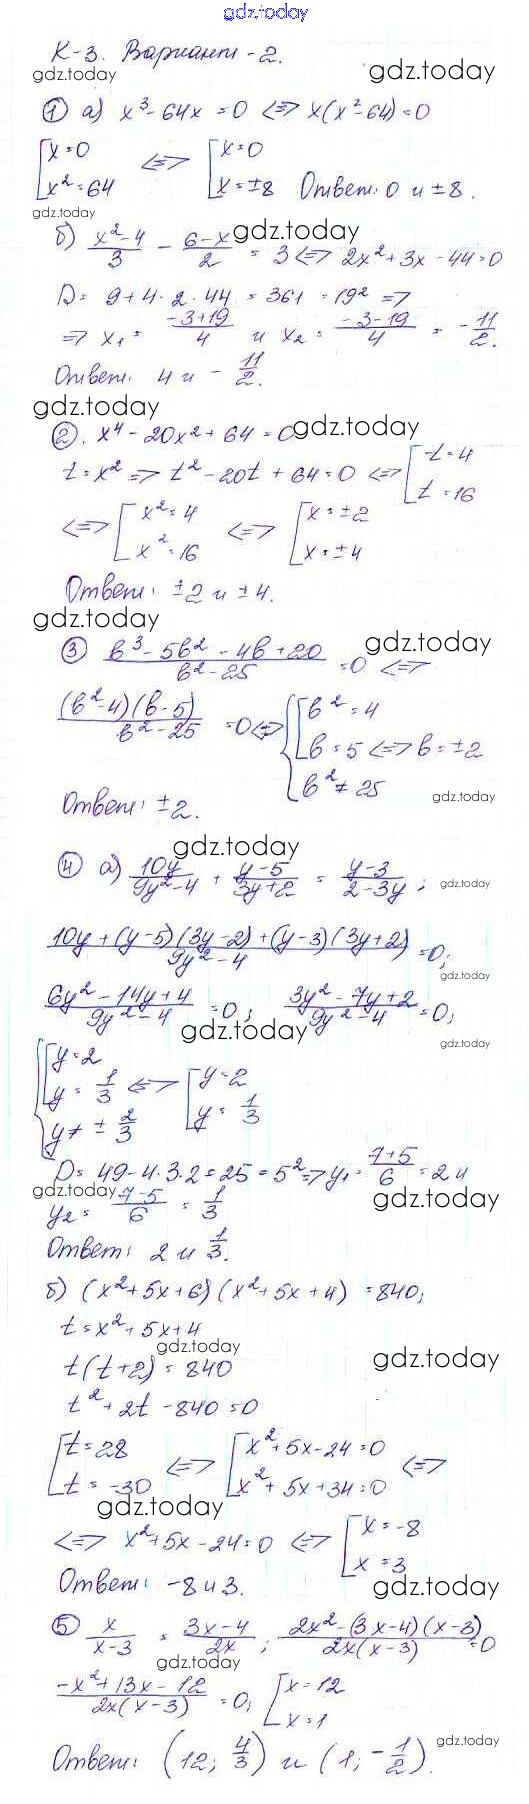 gdz.today
К-3. Вариант - 2.
gdz.today gdz.today
① а) x³-64x = 0 <=> x(x²-64)=0
[x=0 [x=0
[x²=64 <=> [x=±8 Ответ: 0 и ±8.
gdz.today
gdz.today
б) (x²-4)/3 - (6-x)/2 = 3 <=> 2x²+3x-44=0
D = 9+4·2·44 = 361 = 19² =>
=> x₁ = (-3+19)/4 и x₂ = (-3-19)/4 = -11/2.
Ответ: 4 и -11/2.
gdz.today
②. x⁴-20x²+64=0 gdz.today
t=x² => t²-20t+64=0 <=> [t=4
[t=16
<=> [x²=4 <=> [x=±2
[x²=16 [x=±4
Ответ: ±2 и ±4.
gdz.today gdz.today
③ (b³-5b²-4b+20)/(b²-25) = 0 <=>
(b²-4)(b-5)/(b²-25) = 0 <=> {[b²=4
[b=5 <=> b=±2
b²≠25
Ответ: ±2. gdz.today
gdz.today
④ а) 10y/(9y²-4) + (y-5)/(3y+2) = (y-3)/(2-3y); gdz.today
(10y+(y-5)(3y-2)+(y-3)(3y+2))/(9y²-4) = 0;
gdz.today
(6y²-14y+4)/(9y²-4) = 0; (3y²-7y+2)/(9y²-4) = 0;
gdz.today gdz.today
{[y=2
[y=1/3 <=> [y=2
y≠±2/3 [y=1/3
D = 49-4·3·2=25=5² => y₁=(7+5)/6=2 и
gdz.today gdz.today
y₂ = (7-5)/6 = 1/3
Ответ: 2 и 1/3.
б) (x²+5x+6)(x²+5x+4) = 840;
t=x²+5x+4
gdz.today gdz.today
t(t+2) = 840
t²+2t-840=0
[t=28 <=> [x²+5x-24=0 <=>
[t=-30 [x²+5x+34=0
gdz.today
<=> x²+5x-24=0 <=> [x=-8
[x=3
Ответ: -8 и 3. gdz.today
⑤ x/(x-3) = (3x-4)/2x; (2x²-(3x-4)(x-3))/(2x(x-3)) = 0
gdz.today
(-x²+13x-12)/(2x(x-3)) = 0; [x=12
[x=1
Ответ: (12; 4/3) и (1; -1/2). gdz.today